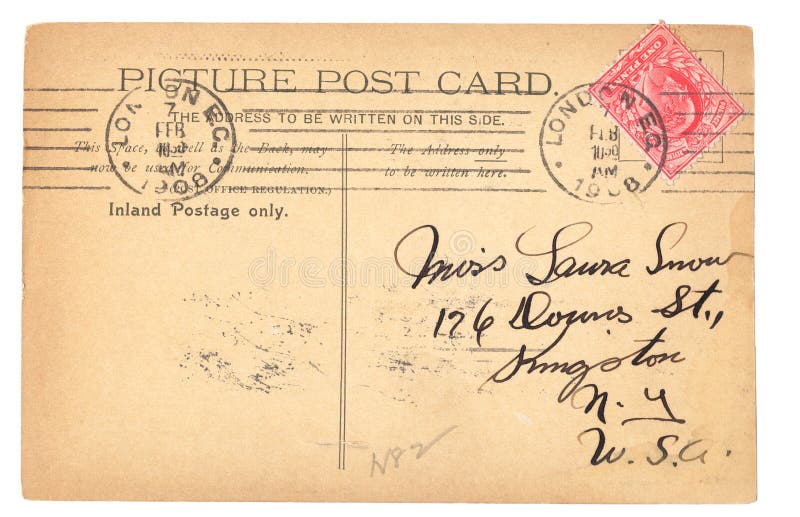 PICTURE POST CARD.
THE ADDRESS TO BE WRITTEN ON THIS SIDE.
This Space, as well as the Back, may
now be used for Communication.
(POST OFFICE REGULATION.)
Inland Postage only.
The Address only
to be written here.
LONDON E.C.
7
FEB
AM
1908
LONDON E.C.
FEB
AM
1908
ONE PENNY
Miss Laura Snow
126 Downs St.,
Kingston
N. Y
U. S. A.
N82
dreamstime